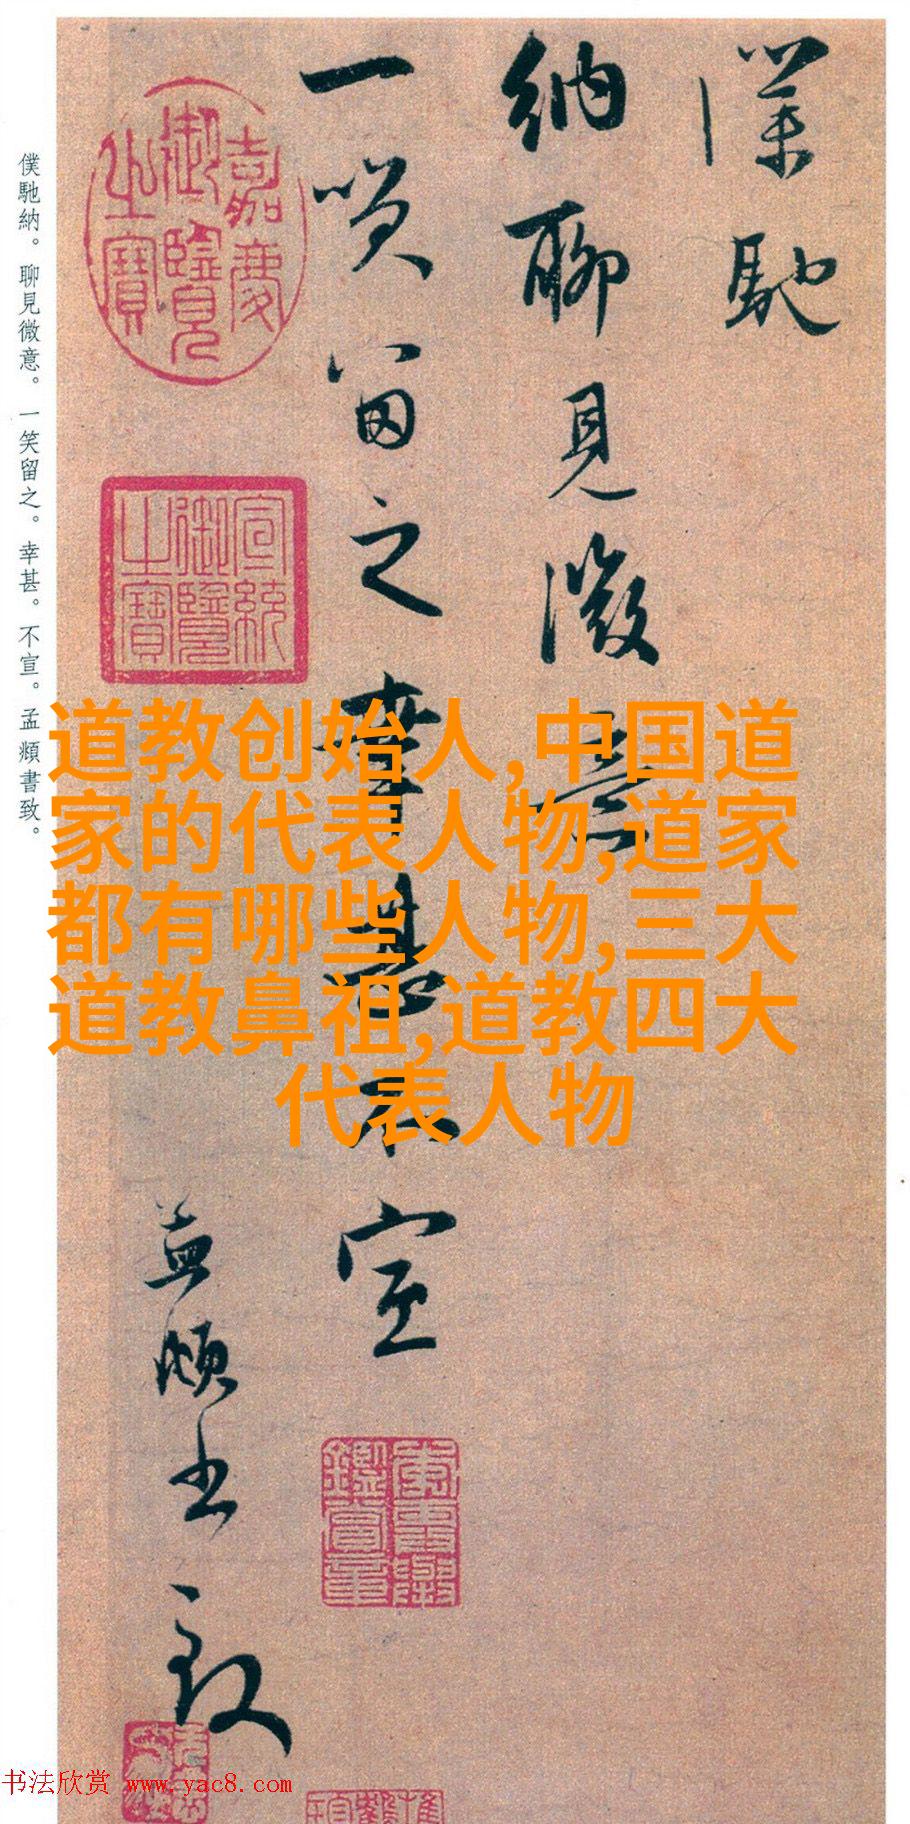 僕馳
納聊見微意
一笑留之幸甚不宣
孟頫書致
嘉慶御覽之寶
宣統御覽之寶
僕馳納。聊見微意。一笑留之。幸甚。不宣。孟頫書致。
道教创始人,中国道
家的代表人物,道家
都有哪些人物,三大
道教鼻祖,道教四大
代表人物
书法欣赏 www.yac8.com